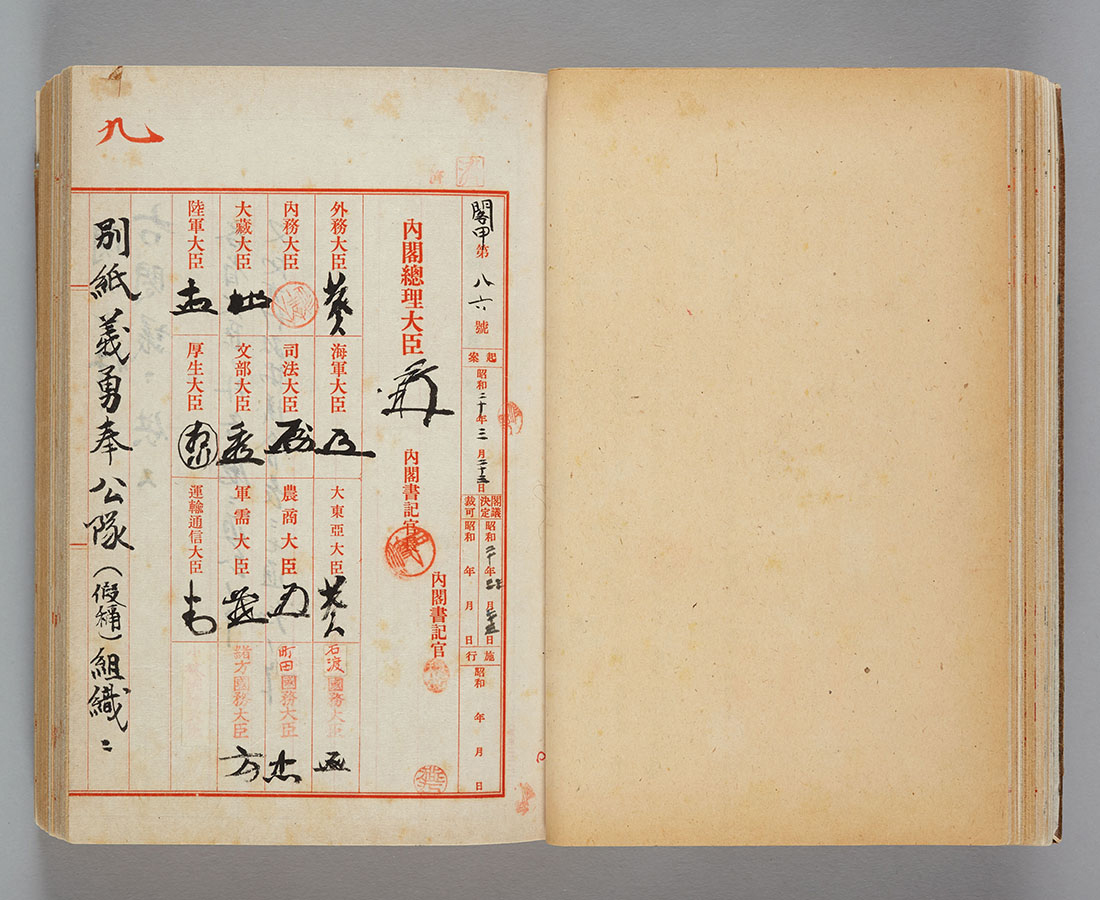 九
閣甲第八六號
起案 昭和二十年三月二十三日
閣議決定 昭和二十年三月二十三日
裁可 昭和 年 月 日
施行 昭和 年 月 日
內閣總理大臣
內閣書記官長
內閣書記官
外務大臣
海軍大臣
大東亞大臣
石渡國務大臣
內務大臣
司法大臣
農商大臣
町田國務大臣
大藏大臣
文部大臣
軍需大臣
緒方國務大臣
陸軍大臣
厚生大臣
運輸通信大臣
別紙義勇奉公隊(假稱)組織ニ